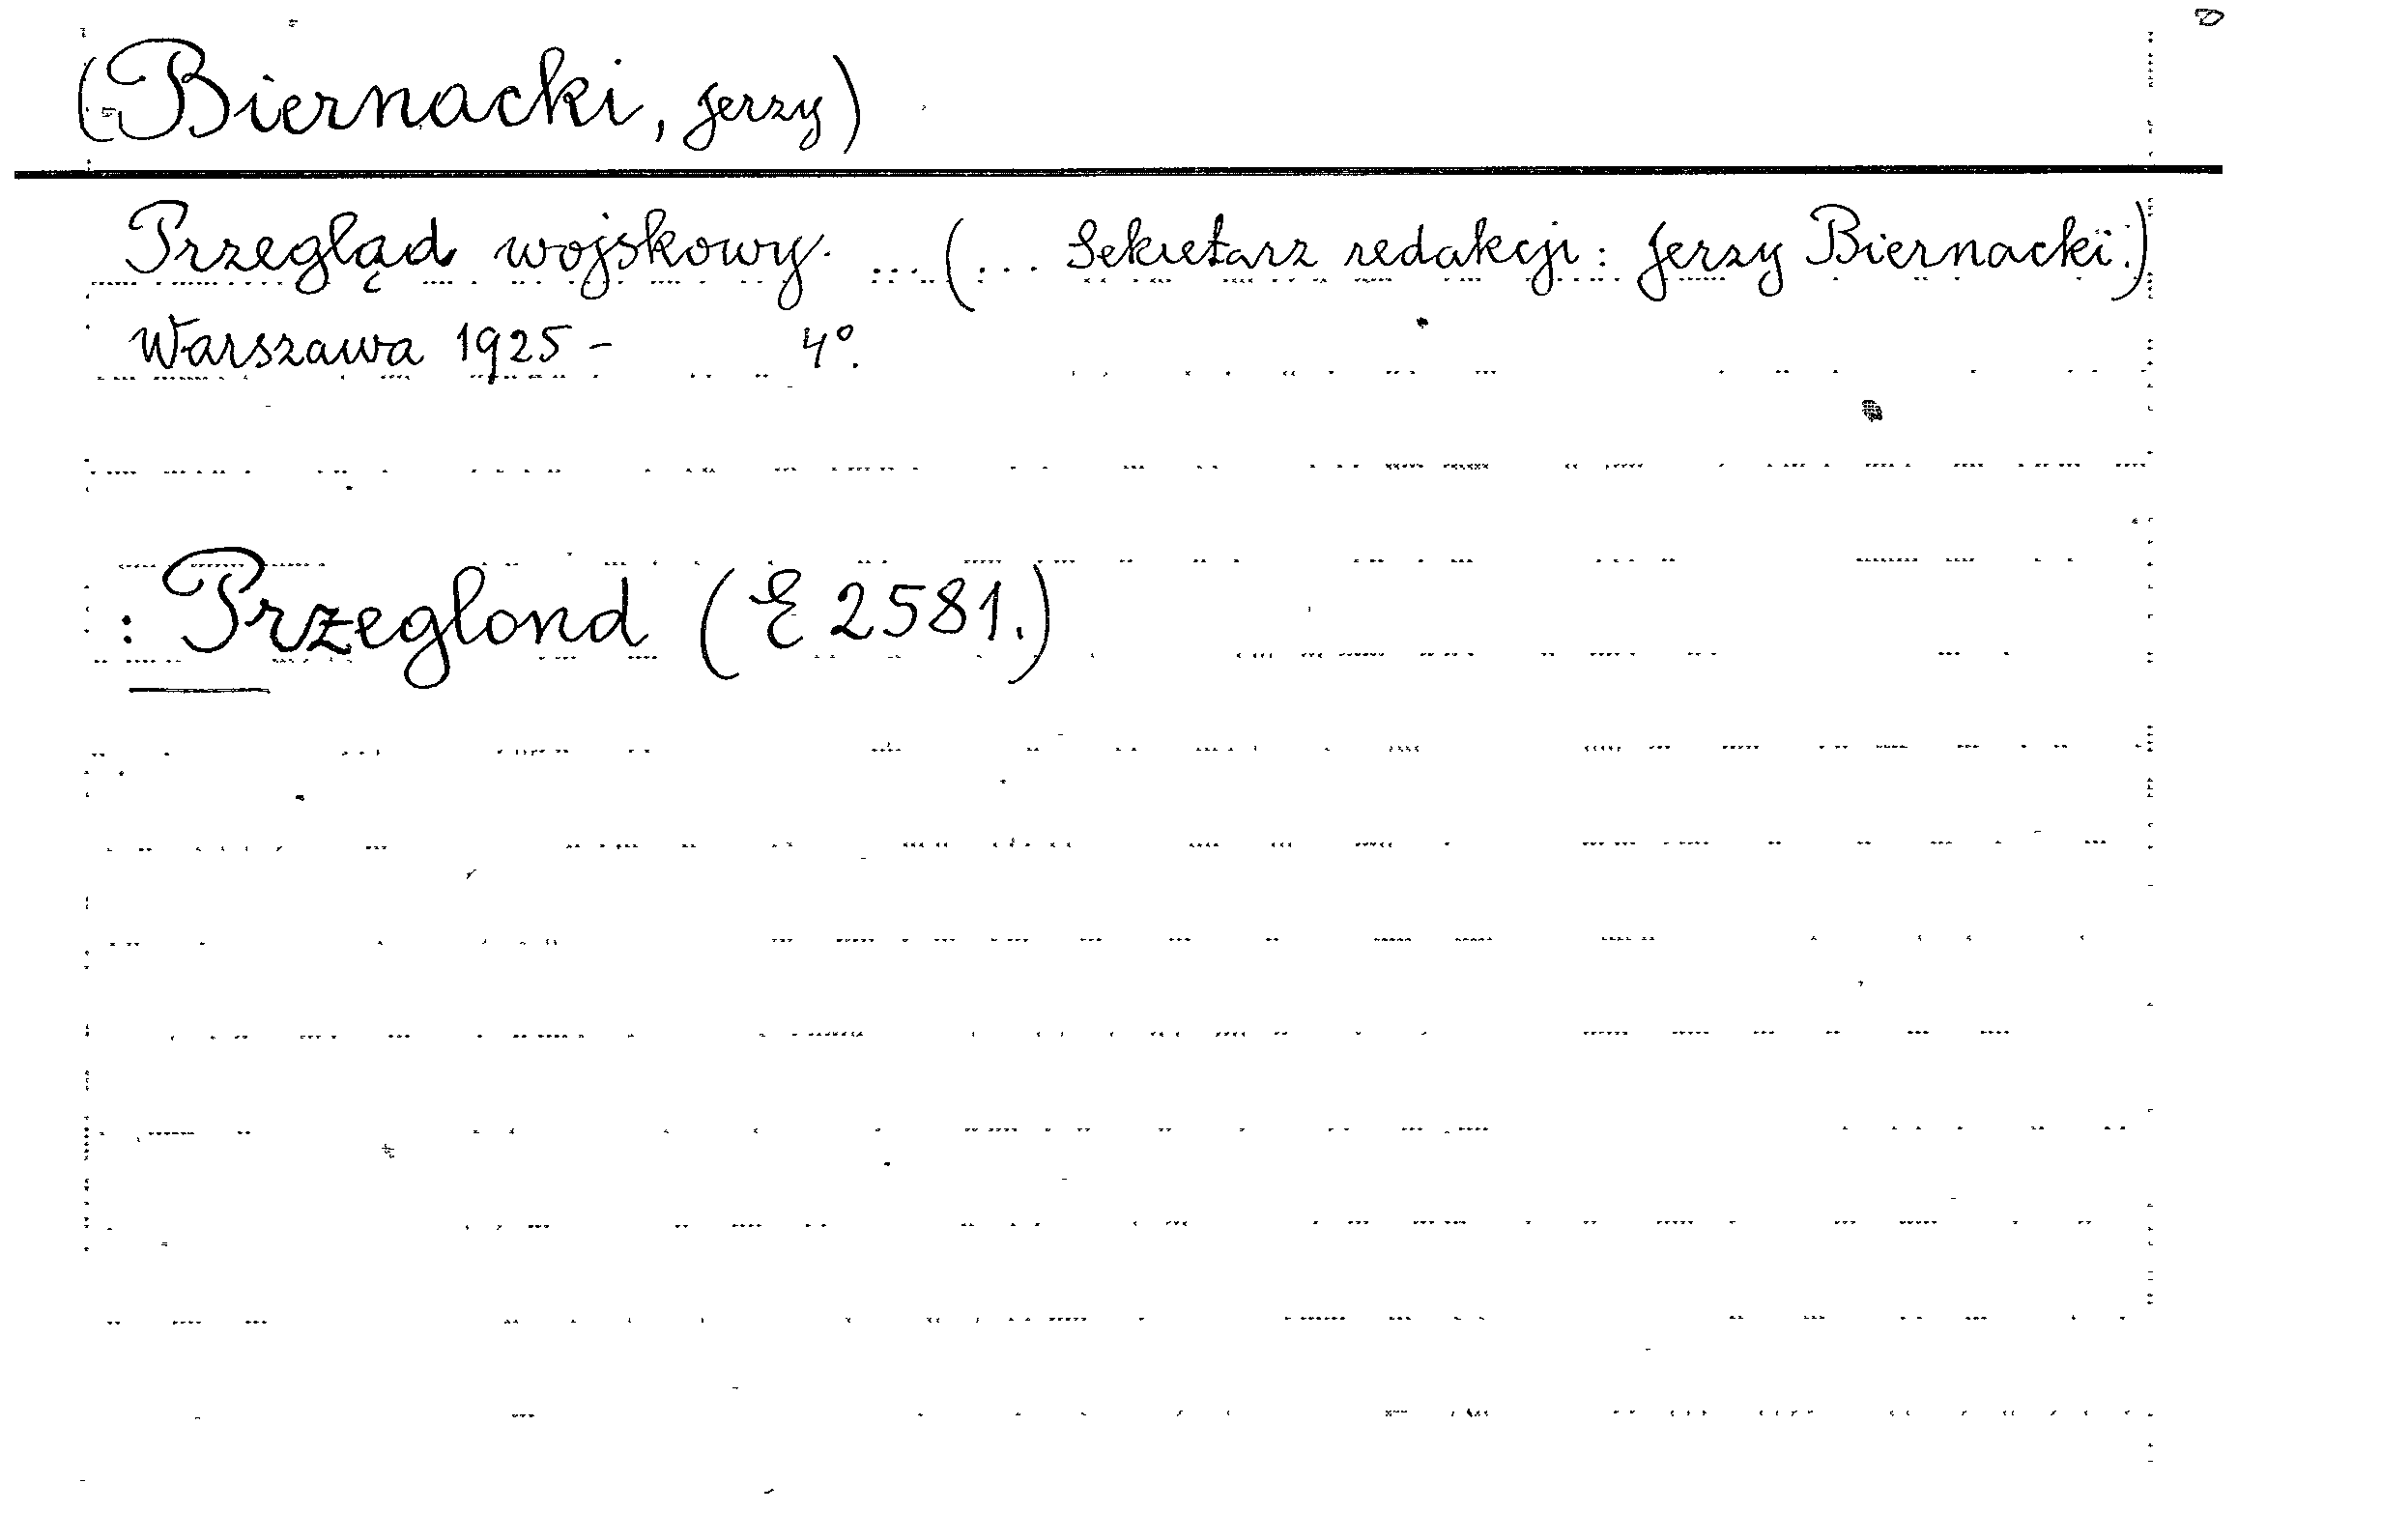 (Biernacki, Jerzy)
Przegląd wojskowy. ... (... Sekretarz redakcji: Jerzy Biernacki.)
Warszawa 1925 - 4°.
: Przeglond (E 2581.)